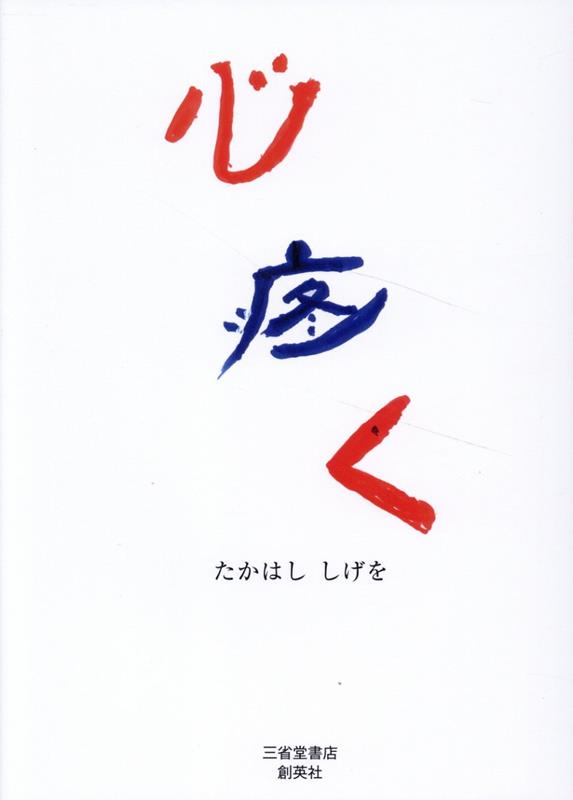 心疼く
たかはし しげを
三省堂書店
創英社